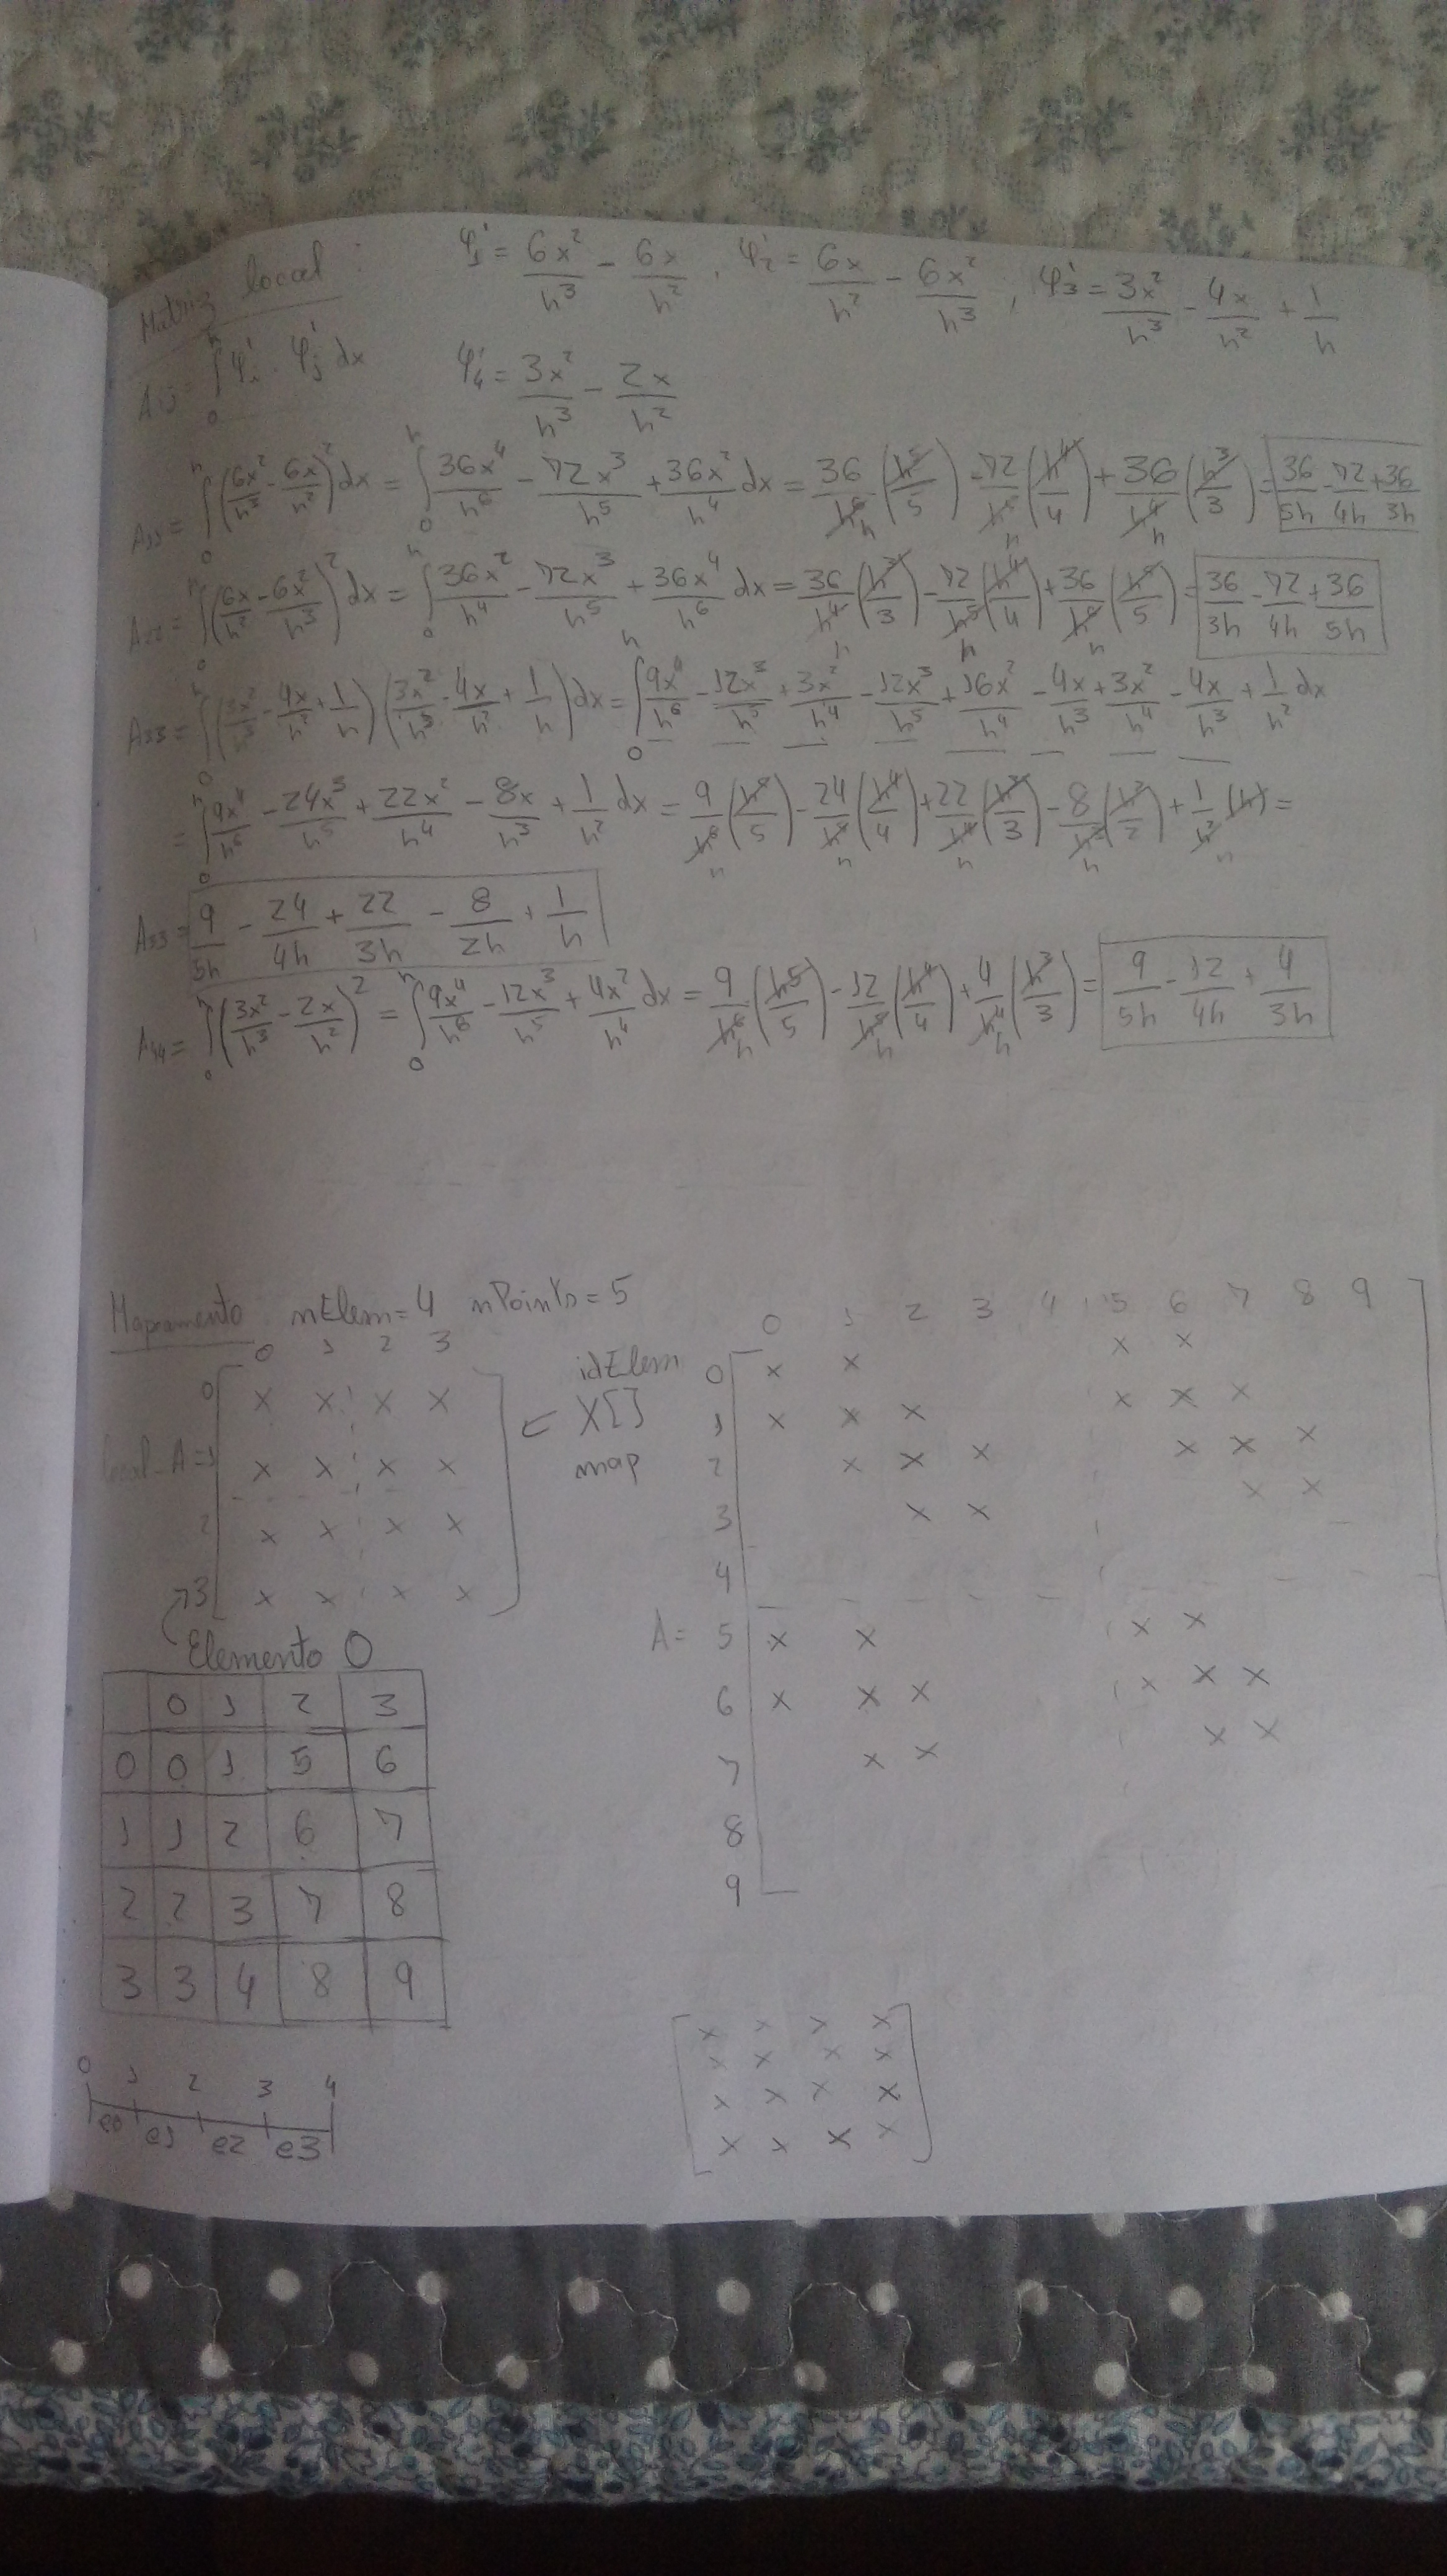 Matriz local : φ₁' = 6x²/h³ - 6x/h² , φ₂' = 6x/h² - 6x²/h³ , φ₃' = 3x²/h³ - 4x/h² + 1/h
Aij = ∫₀ʰ φi' . φj' dx φ₄' = 3x²/h³ - 2x/h²
A11 = ∫₀ʰ (6x²/h³ - 6x/h²)² dx = ∫₀ʰ 36x⁴/h⁶ - 72x³/h⁵ + 36x²/h⁴ dx = 36/h⁶ (h⁵/5) - 72/h⁵ (h⁴/4) + 36/h⁴ (h³/3) = 36/5h - 72/4h + 36/3h
A22 = ∫₀ʰ (6x/h² - 6x²/h³)² dx = ∫₀ʰ 36x²/h⁴ - 72x³/h⁵ + 36x⁴/h⁶ dx = 36/h⁴ (h³/3) - 72/h⁵ (h⁴/4) + 36/h⁶ (h⁵/5) = 36/3h - 72/4h + 36/5h
A33 = ∫₀ʰ (3x²/h³ - 4x/h² + 1/h) (3x²/h³ - 4x/h² + 1/h) dx = ∫₀ʰ 9x⁴/h⁶ - 12x³/h⁵ + 3x²/h⁴ - 12x³/h⁵ + 16x²/h⁴ - 4x/h³ + 3x²/h⁴ - 4x/h³ + 1/h² dx
= ∫₀ʰ 9x⁴/h⁶ - 24x³/h⁵ + 22x²/h⁴ - 8x/h³ + 1/h² dx = 9/h⁶ (h⁵/5) - 24/h⁵ (h⁴/4) + 22/h⁴ (h³/3) - 8/h³ (h²/2) + 1/h² (h) =
A33 = 9/5h - 24/4h + 22/3h - 8/2h + 1/h
A44 = ∫₀ʰ (3x²/h³ - 2x/h²)² = ∫₀ʰ 9x⁴/h⁶ - 12x³/h⁵ + 4x²/h⁴ dx = 9/h⁶ (h⁵/5) - 12/h⁵ (h⁴/4) + 4/h⁴ (h³/3) = 9/5h - 12/4h + 4/3h
Mapeamento nElem = 4 nPoints = 5
0 1 2 3
0 x x x x
local_A = 1 x x x x
2 x x x x
3 x x x x
idElem
X[]
map
Elemento 0
0 1 2 3
0 0 1 5 6
1 1 2 6 7
2 2 3 7 8
3 3 4 8 9
0 1 2 3 4
e0 e1 e2 e3
0 1 2 3 4 5 6 7 8 9
0 x x x x
1 x x x x x x
2 x x x x x x
3 x x x x
4
A = 5 x x x x
6 x x x x x x
7 x x x x
8
9
x x x x
x x x x
x x x x
x x x x